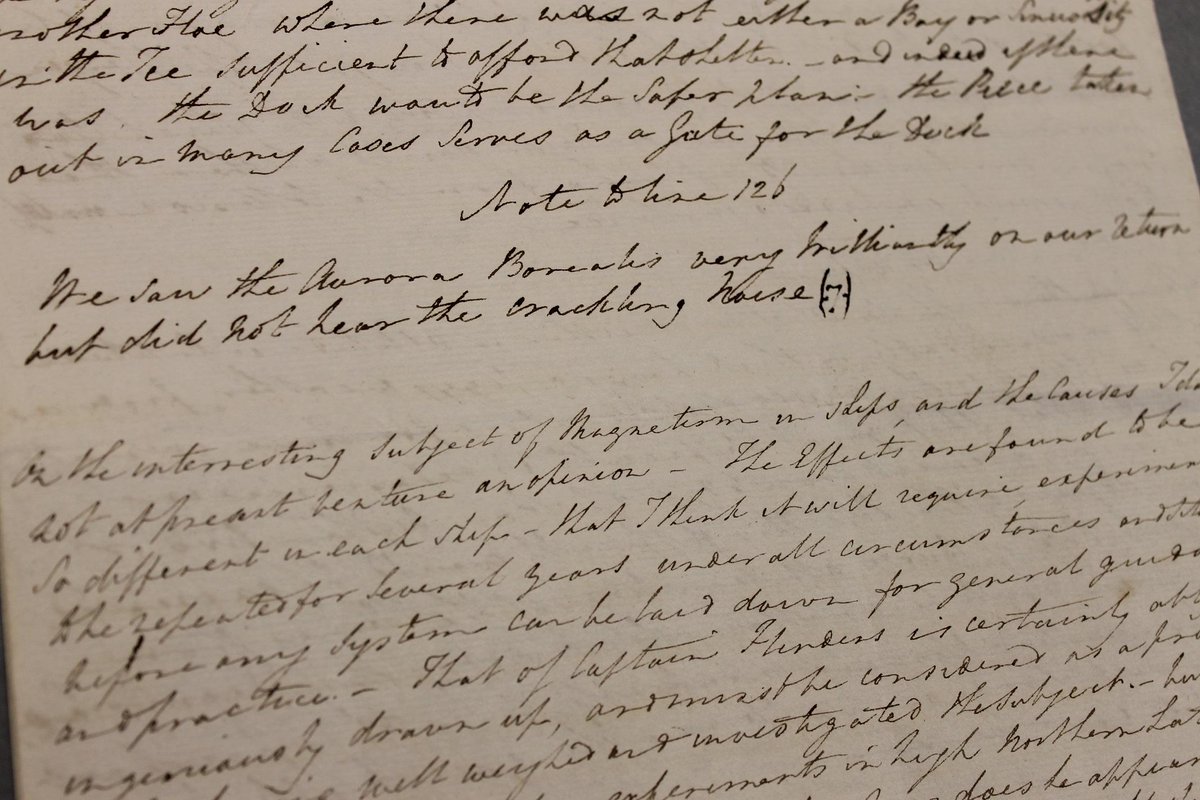 another Floe where there was not either a Bay or Sinuosity
in the Ice sufficient to afford that shelter. - and indeed if there
was. the Dock would be the Safer plan - the Piece taken
out in many Cases Serves as a Gate for the Dock
Note to line 126
We saw the Aurora Borealis very brilliantly on our return
but did not hear the crackling Noise (?)
On the interresting Subject of Magnetism in ships, and the Causes I do
not at present venture an opinion - The Effects are found to be
So different in each ship - that I think it will require experiments
to be repeated for Several years under all circumstances and
before any System can be laid down for general guidance
and practice. - That of Captain Flinders is certainly
ingeniously drawn up, and must be considered as a
well weighed and investigated the subject. - but
experiments in high Northern Lat
does he appear